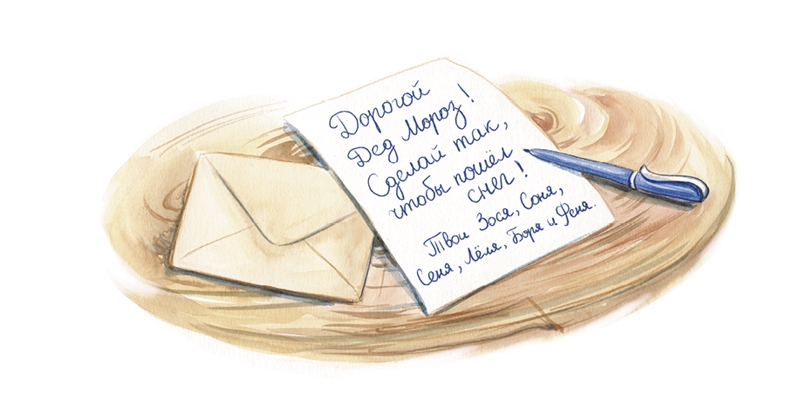 Дорогой
Дед Мороз!
Сделай так,
чтобы пошёл
снег!
Твои Зося, Соня,
Сеня, Лёля, Боря и Феня.